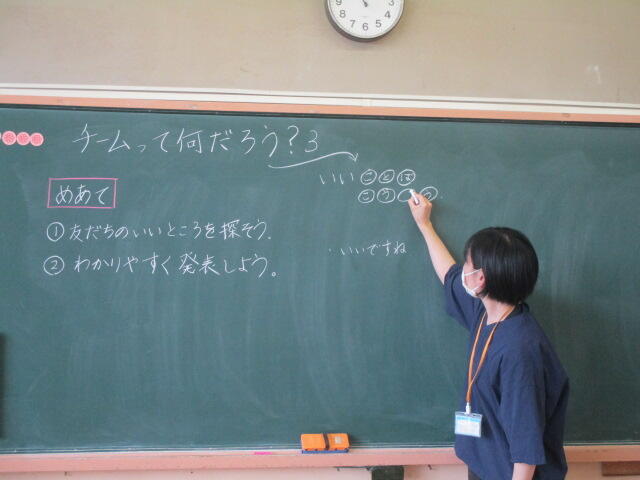 チームって何だろう?3
いい ことば
こう
めあて
① 友だちのいいところを探そう。
② わかりやすく発表しよう。
・いいですね